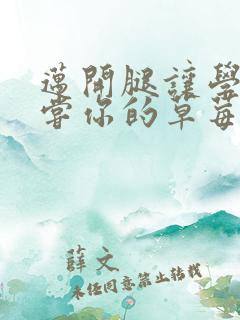 邁開腿讓學
嘗你的草莓
薛文
未经同意禁止转载